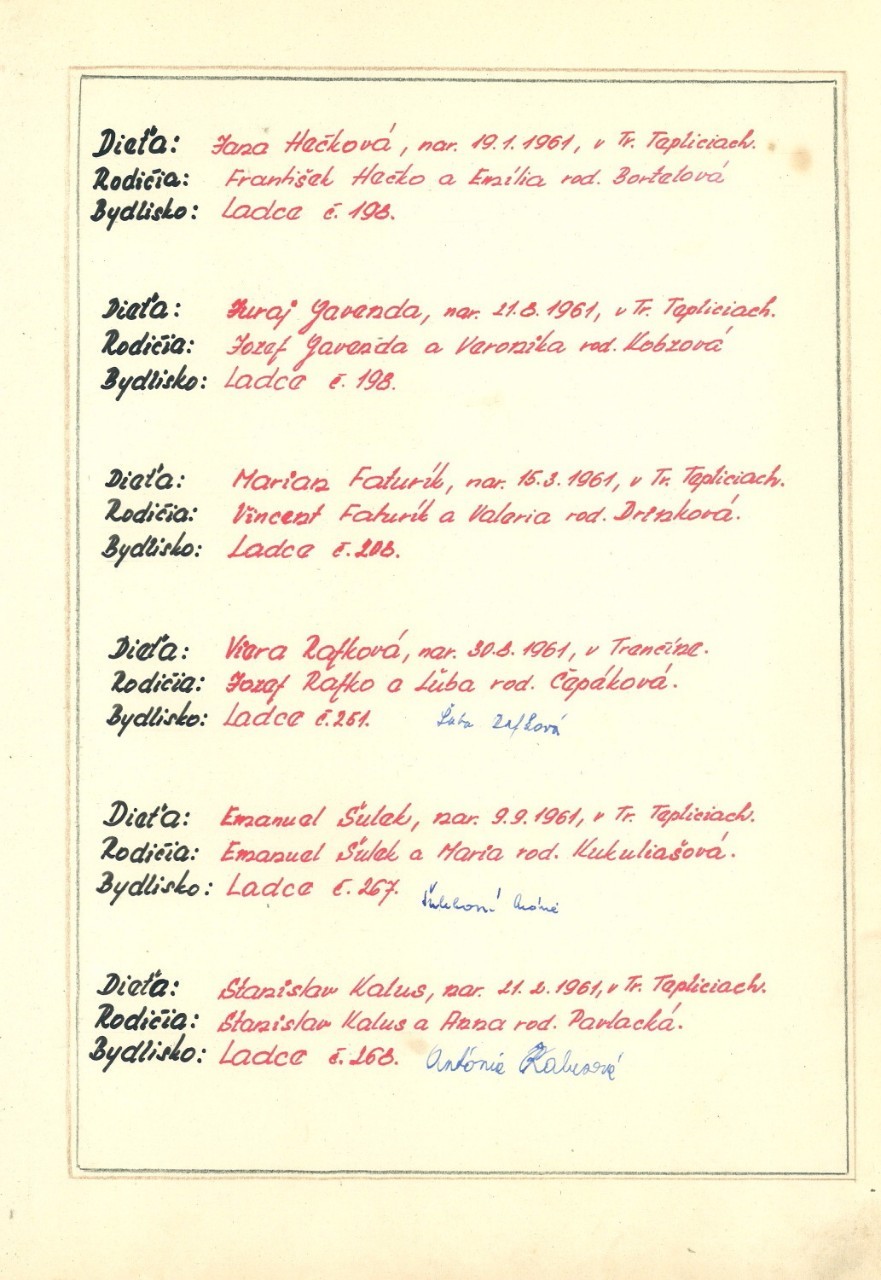 Dieťa: Jana Hečková, nar. 19.1.1961, v Tr. Tepliciach.
Rodičia: František Hečko a Emília rod. Bortelová
Bydlisko: Ladce č. 198.
Dieťa: Juraj Gavenda, nar. 21.8.1961, v Tr. Tepliciach.
Rodičia: Jozef Gavenda a Veronika rod. Kobzová
Bydlisko: Ladce č. 198.
Dieťa: Marian Faturík, nar. 15.3.1961, v Tr. Tepliciach.
Rodičia: Vincent Faturík a Valeria rod. Drinková.
Bydlisko: Ladce č. 208.
Dieťa: Viera Rafková, nar. 30.8.1961, v Trenčíne.
Rodičia: Jozef Rafko a Ľuba rod. Čepáková.
Bydlisko: Ladce č. 251. Ľuba Rafková
Dieťa: Emanuel Šulek, nar. 9.9.1961, v Tr. Tepliciach.
Rodičia: Emanuel Šulek a Maria rod. Kukuliašová.
Bydlisko: Ladce č. 267.
Dieťa: Stanislav Kalus, nar. 21.2.1961, v Tr. Tepliciach.
Rodičia: Stanislav Kalus a Anna rod. Pavlacká.
Bydlisko: Ladce č. 268. Antónie Kalusová